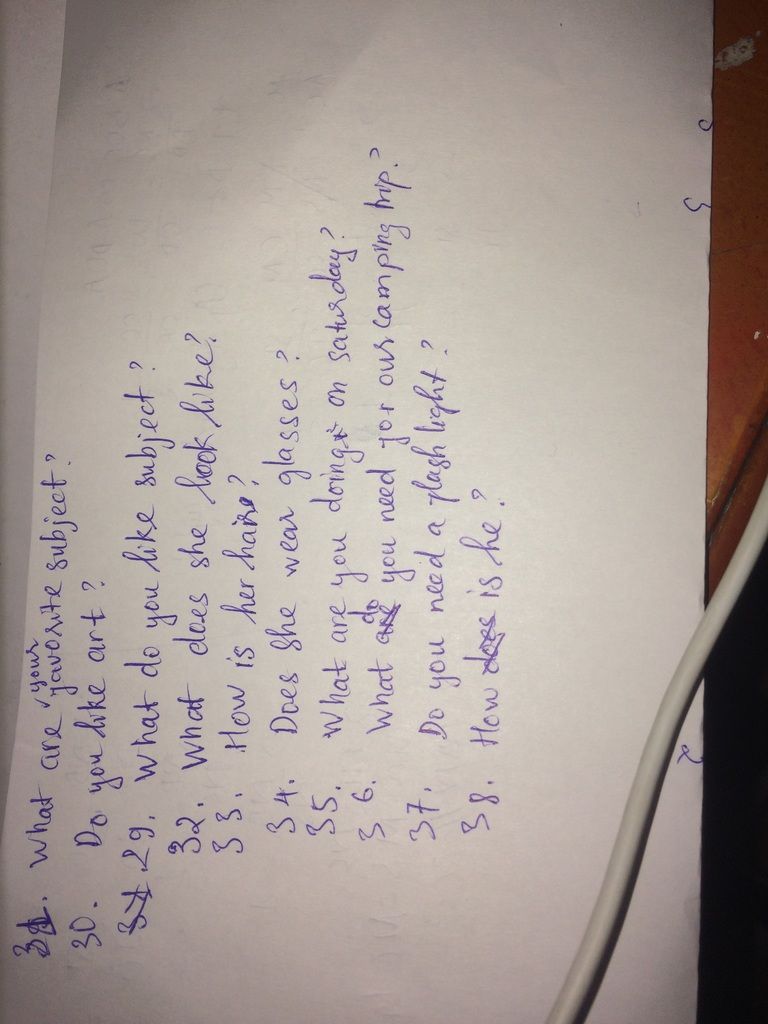 31. What are your favorite subject?
30. Do you like art?
29. What do you like subject?
32. What does she look like?
33. How is her hair?
34. Does she wear glasses?
35. What are you doing on saturday?
36. What do you need for our camping trip?
37. Do you need a flash light?
38. How is he?